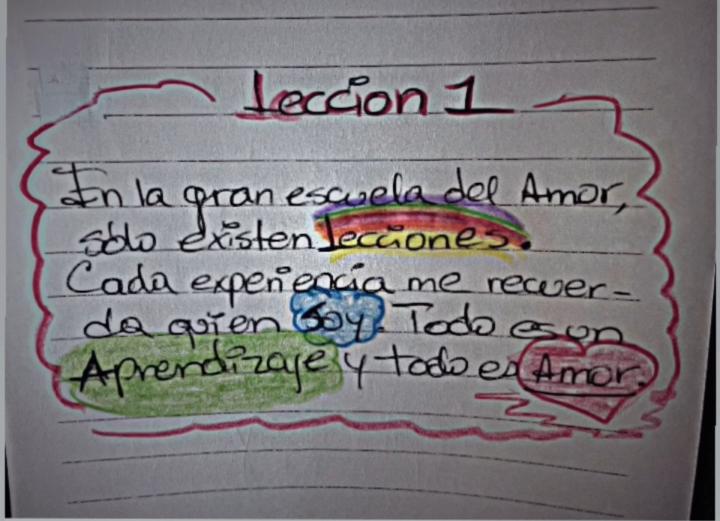 Leccion 1
En la gran escuela del Amor,
sólo existen lecciones.
Cada experiencia me recuer-
da quien Soy. Todo es un
Aprendizaje y todo es Amor.